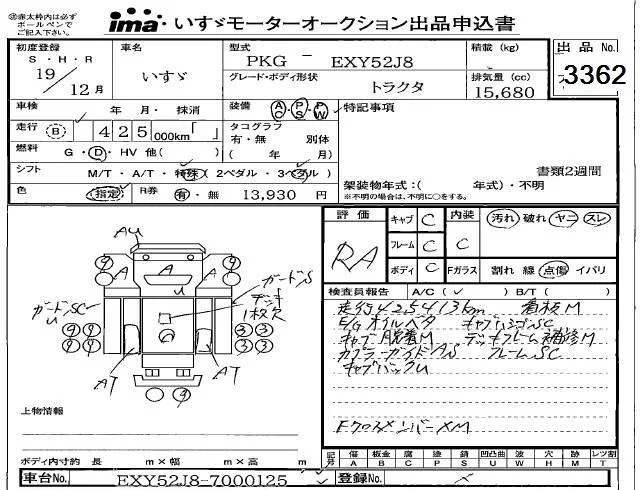 ※赤太枠内は必ず
ボールペンで
ご記入下さい。
ima・いすゞモーターオークション出品申込書
初度登録
S・H・R
19/12月
車名
いすゞ
型式
PKG - EXY52J8
グレード・ボディ形状
トラクタ
積載(kg)
排気量(cc)
15,680
出品No.
3362
車検 年 月・抹消
装備 AC・PS・PW
特記事項
走行 (B) 425,000km「」
タコグラフ
有・無 別体
( 年 月)
燃料 G・D・HV 他( )
シフト M/T・A/T・特殊(2ペダル・3ペダル)
書類2週間
色 指定 R券 有・無 13,930円
架装物年式:( 年式)・不明
※不明の場合は、不明に○をする。
評価
RA
キャブ C
フレーム C
ボディ C
内装 C
汚れ 破れ ヤニ スレ
Fガラス 割れ 線 点傷 イバリ
検査員報告 A/C(✓) B/T( )
走行425413km 看板M
E/Gオイルベタ キャブハシゴSC
キャブ脱着M デッキフレーム補修M
カプラーガイドAS フレームSC
キャブバックU
FクロスメンバーXM
AU
A
A
A
U
ガードルS
デッキ
1枚欠
ガードルSC
U
9 9
9 9
9 9
9 9
3 3
3 3
AT
AT
9
上物情報
ボディ内寸約 長 m×幅 m×高 m
記号
傷 板金 腐 塗 錆 凹凸曲 割 穴 跡 レツ割
A B C P S U W H M T
車台No. EXY52J8-7000125
登録No. ×